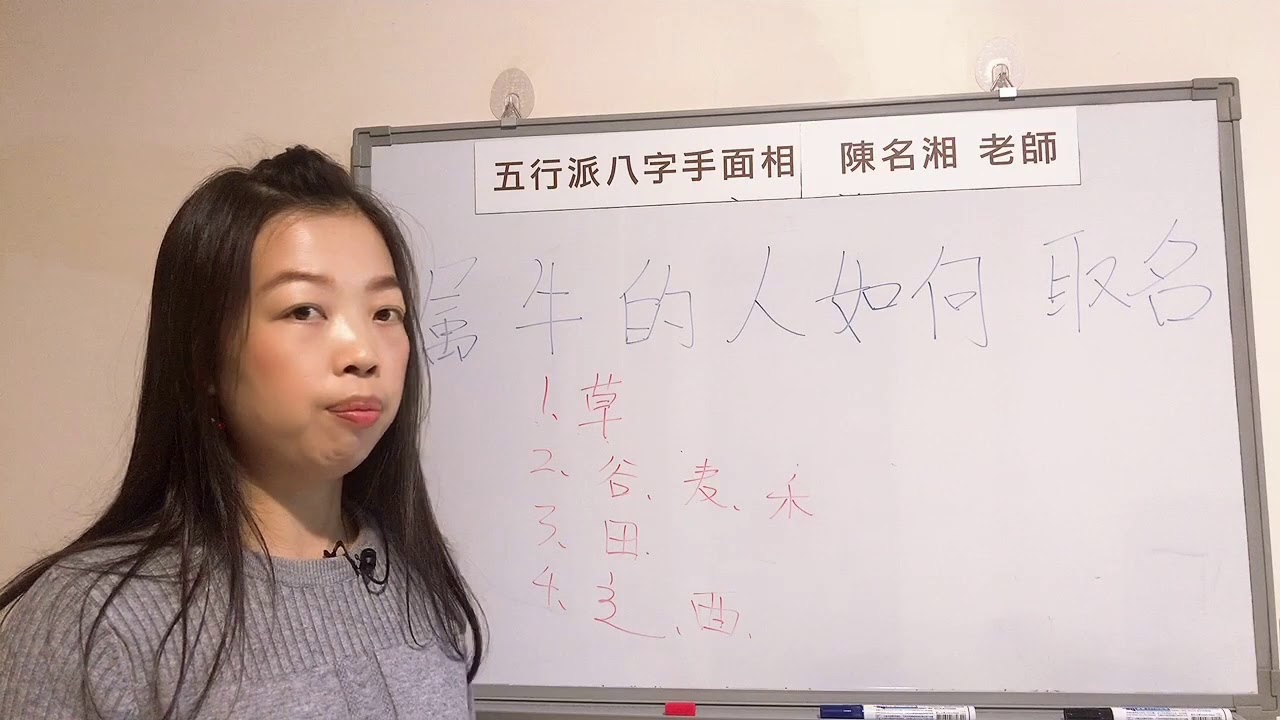 五行派八字手面相 陳名湘 老師
属牛的人如何取名
1、草
2、谷、麦、禾
3、田、
4、辶、酉、